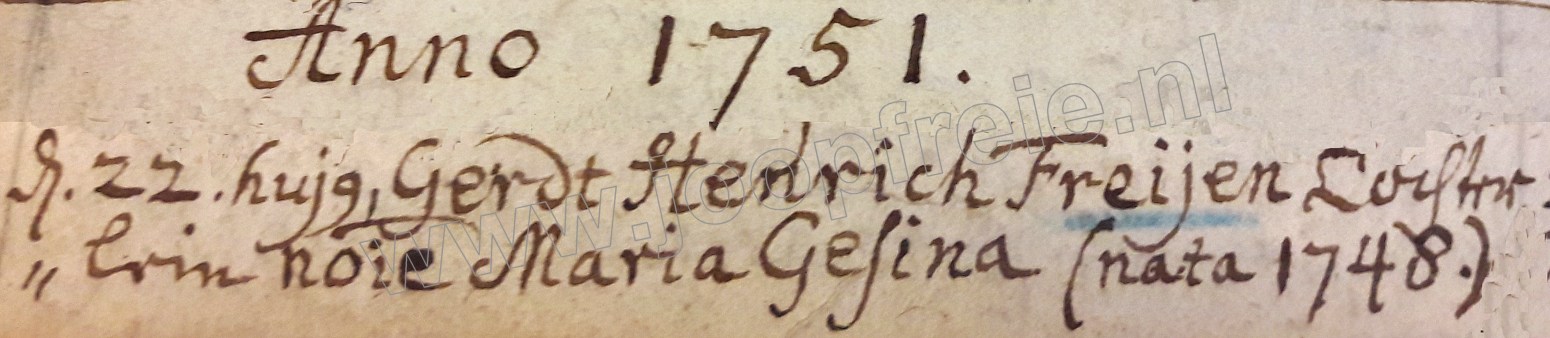 Anno 1751.
d. 22. hujꝰ, Gerdt Henrich Freijen Tochter
„lein nōīe Maria Geſina (nata 1748.)
www.joopfreie.nl